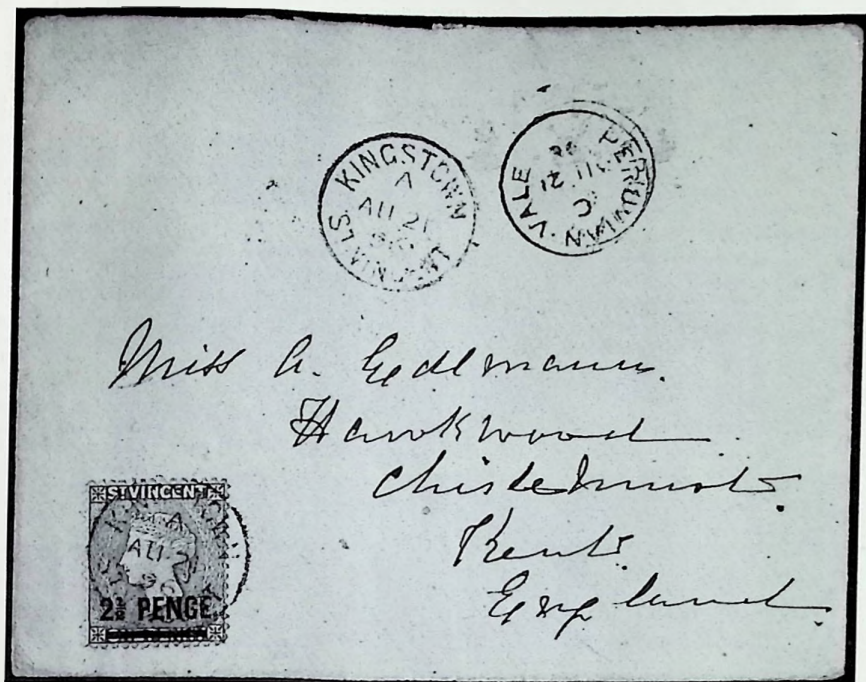 KINGSTOWN
A
AU 21
96
ST VINCENT
PERUVIAN·VALE
C
21
96
Miss A. Edlmann.
Hawkwood
Chislehurst
Kent
England
ST VINCENT
A
AU 2
96
2½ PENCE